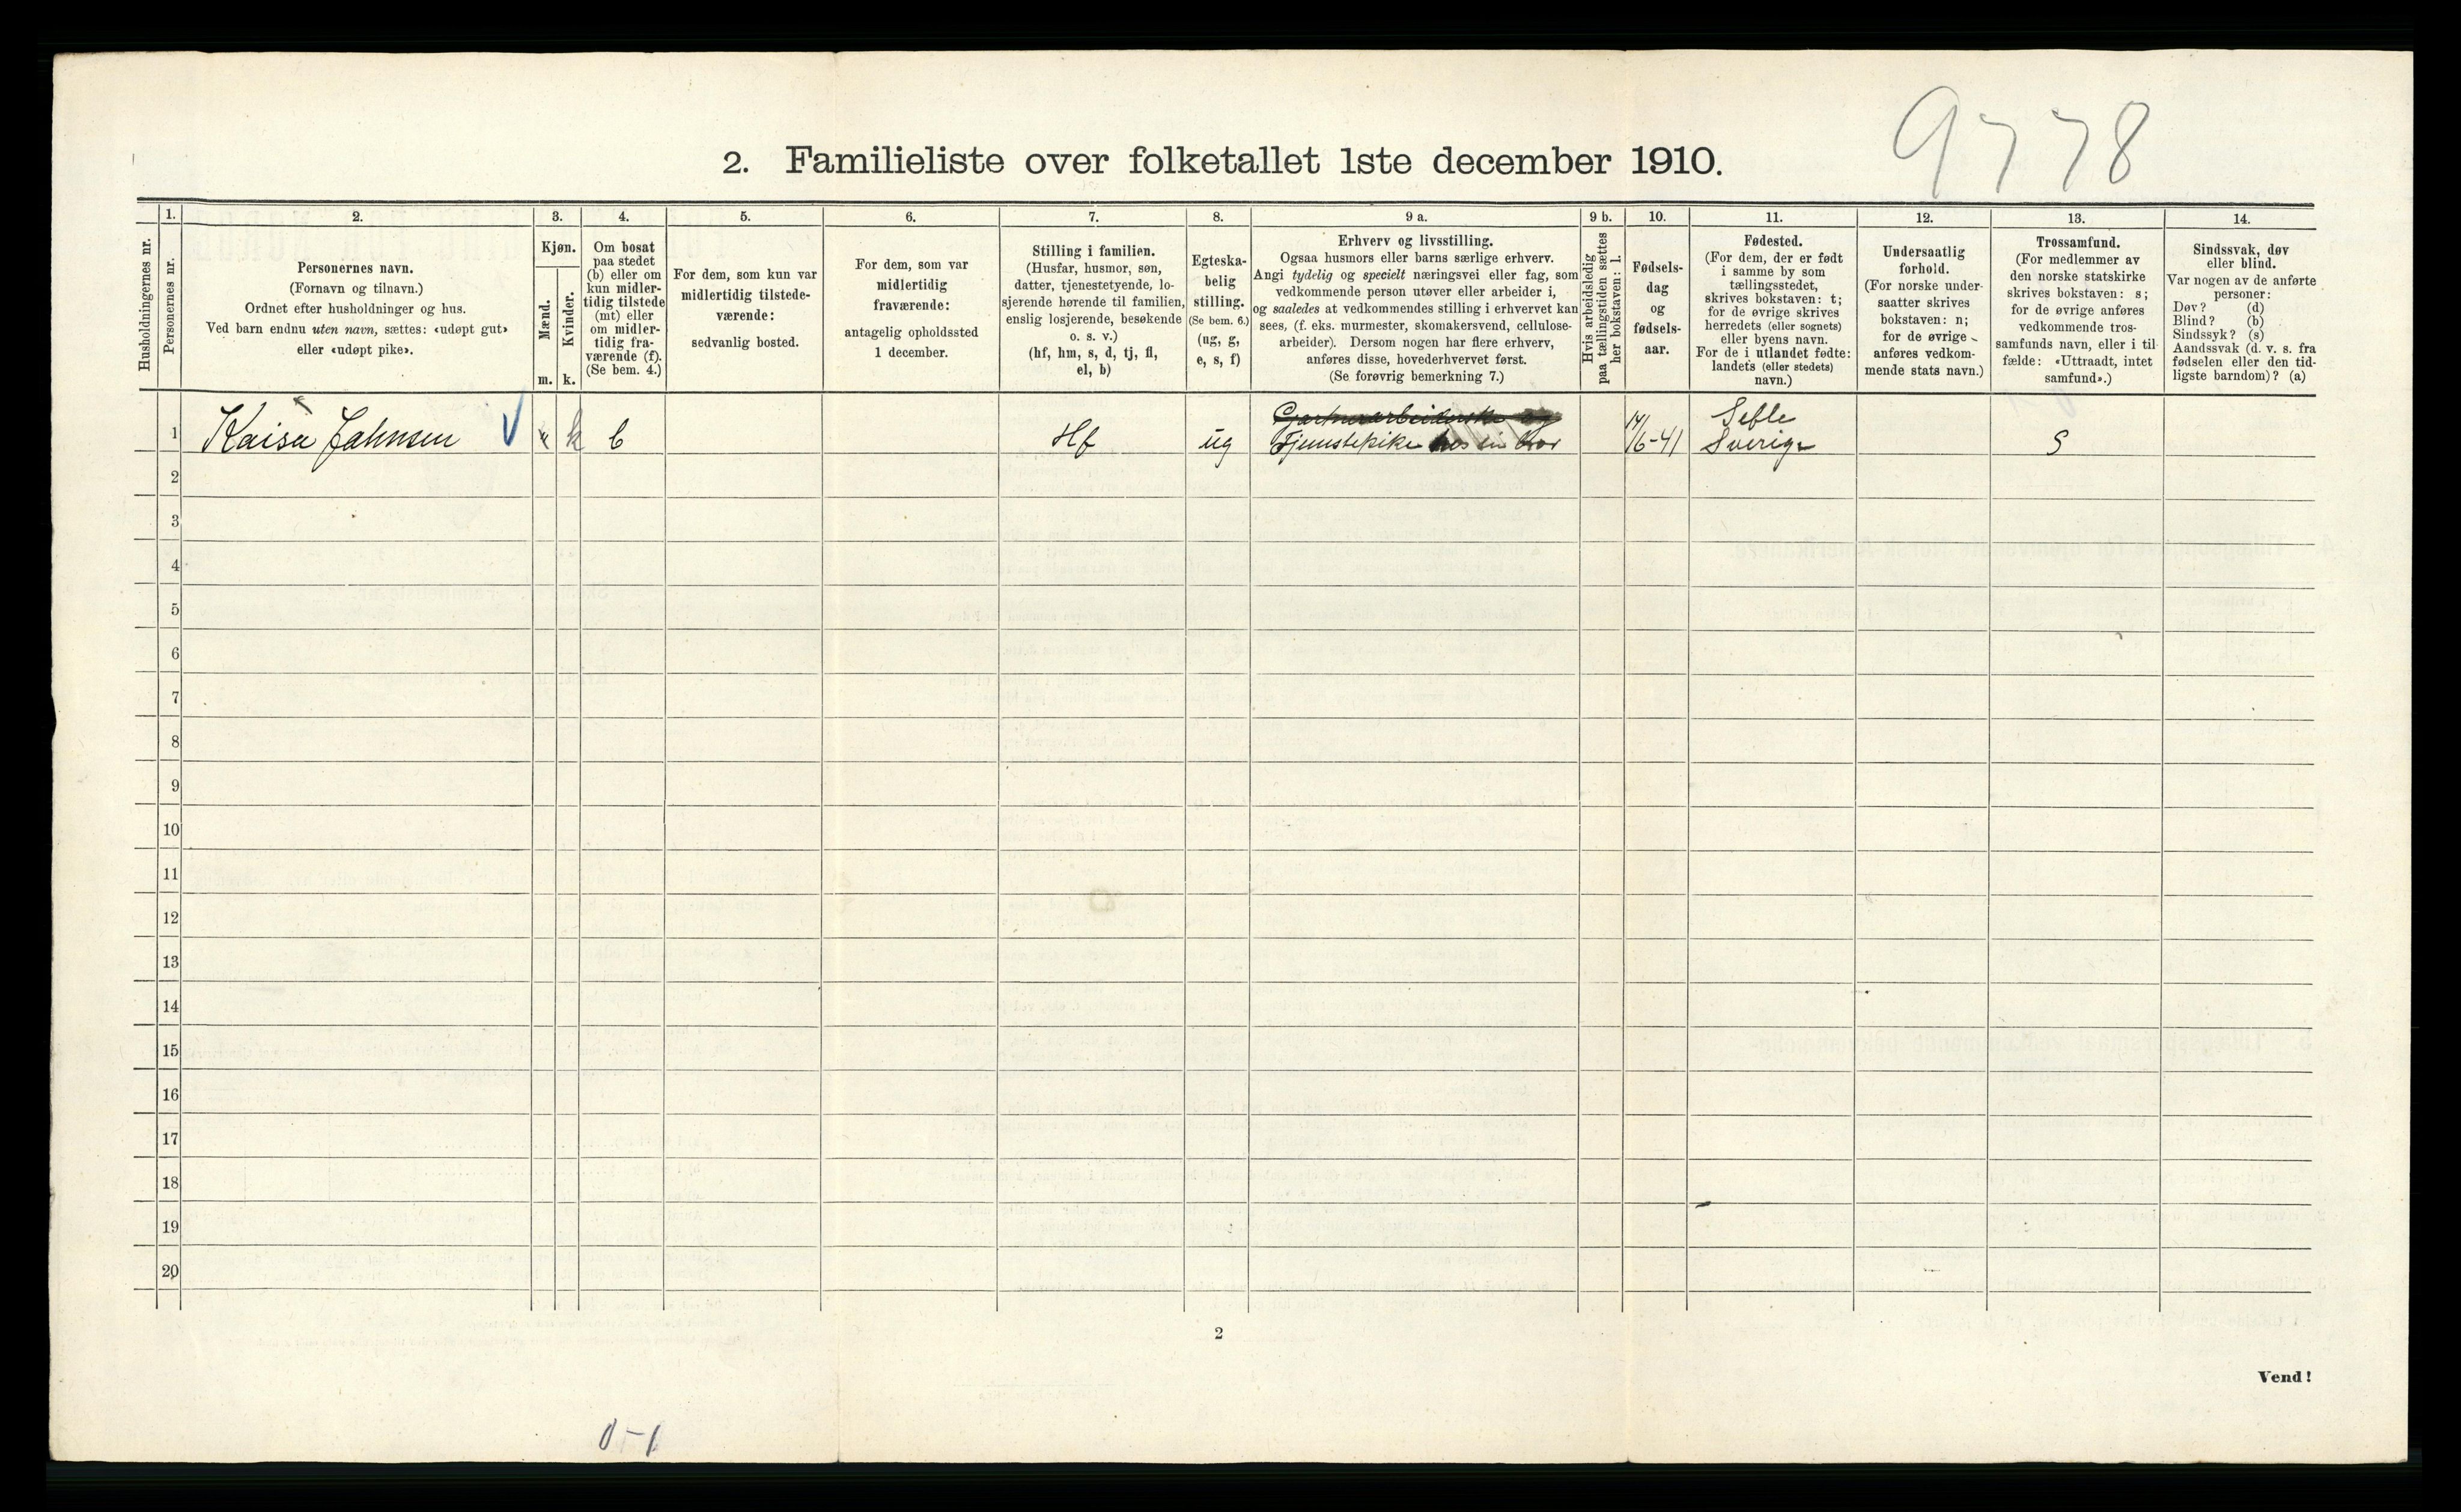 9778
2. Familieliste over folketallet 1ste december 1910.
Husholdningernes nr.
1.
Personernes nr.
2.
Personernes navn.
(Fornavn og tilnavn.)
Ordnet efter husholdninger og hus.
Ved barn endnu uten navn, sættes: «udøpt gut»
eller «udøpt pike».
3.
Kjøn.
Mænd.
m.
Kvinder.
k.
4.
Om bosat
paa stedet
(b) eller om
kun midler-
tidig tilstede
(mt) eller
om midler-
tidig fra-
værende (f).
(Se bem. 4.)
5.
For dem, som kun var
midlertidig tilstede-
værende:
sedvanlig bosted.
6.
For dem, som var
midlertidig
fraværende:
antagelig opholdssted
1 december.
7.
Stilling i familien.
(Husfar, husmor, søn,
datter, tjenestetyende, lo-
sjerende hørende til familien,
enslig losjerende, besøkende
o. s. v.)
(hf, hm, s, d, tj, fl,
el, b)
8.
Egteska-
belig
stilling.
(Se bem. 6.)
(ug, g,
e, s, f)
9 a.
Erhverv og livsstilling.
Ogsaa husmors eller barns særlige erhverv.
Angi tydelig og specielt næringsvei eller fag, som
vedkommende person utøver eller arbeider i,
og saaledes at vedkommendes stilling i erhvervet kan
sees, (f. eks. murmester, skomakersvend, cellulose-
arbeider). Dersom nogen har flere erhverv,
anføres disse, hovederhvervet først.
(Se forøvrig bemerkning 7.)
9 b.
Hvis arbeidsledig
paa tællingstiden sættes
her bokstaven: l.
10.
Fødsels-
dag
og
fødsels-
aar.
11.
Fødested.
(For dem, der er født
i samme by som
tællingsstedet,
skrives bokstaven: t;
for de øvrige skrives
herredets (eller sognets)
eller byens navn.
For de i utlandet fødte:
landets (eller stedets)
navn.)
12.
Undersaatlig
forhold.
(For norske under-
saatter skrives
bokstaven: n;
for de øvrige
anføres vedkom-
mende stats navn.)
13.
Trossamfund.
(For medlemmer av
den norske statskirke
skrives bokstaven: s;
for de øvrige anføres
vedkommende tros-
samfunds navn, eller i til-
fælde: «Uttraadt, intet
samfund».)
14.
Sindssvak, døv
eller blind.
Var nogen av de anførte
personer:
Døv? (d)
Blind? (b)
Sindssyk? (s)
Aandssvak (d. v. s. fra
fødselen eller den tid-
ligste barndom)? (a)
1 Kaisa Jahnsen k b Hf ug Tjenstepike hos en Bror 14/6-41 Sefle Sverige S
2
3
4
5
6
7
8
9
10
11
12
13
14
15
16
17
18
19
20
2
Vend!
0-1